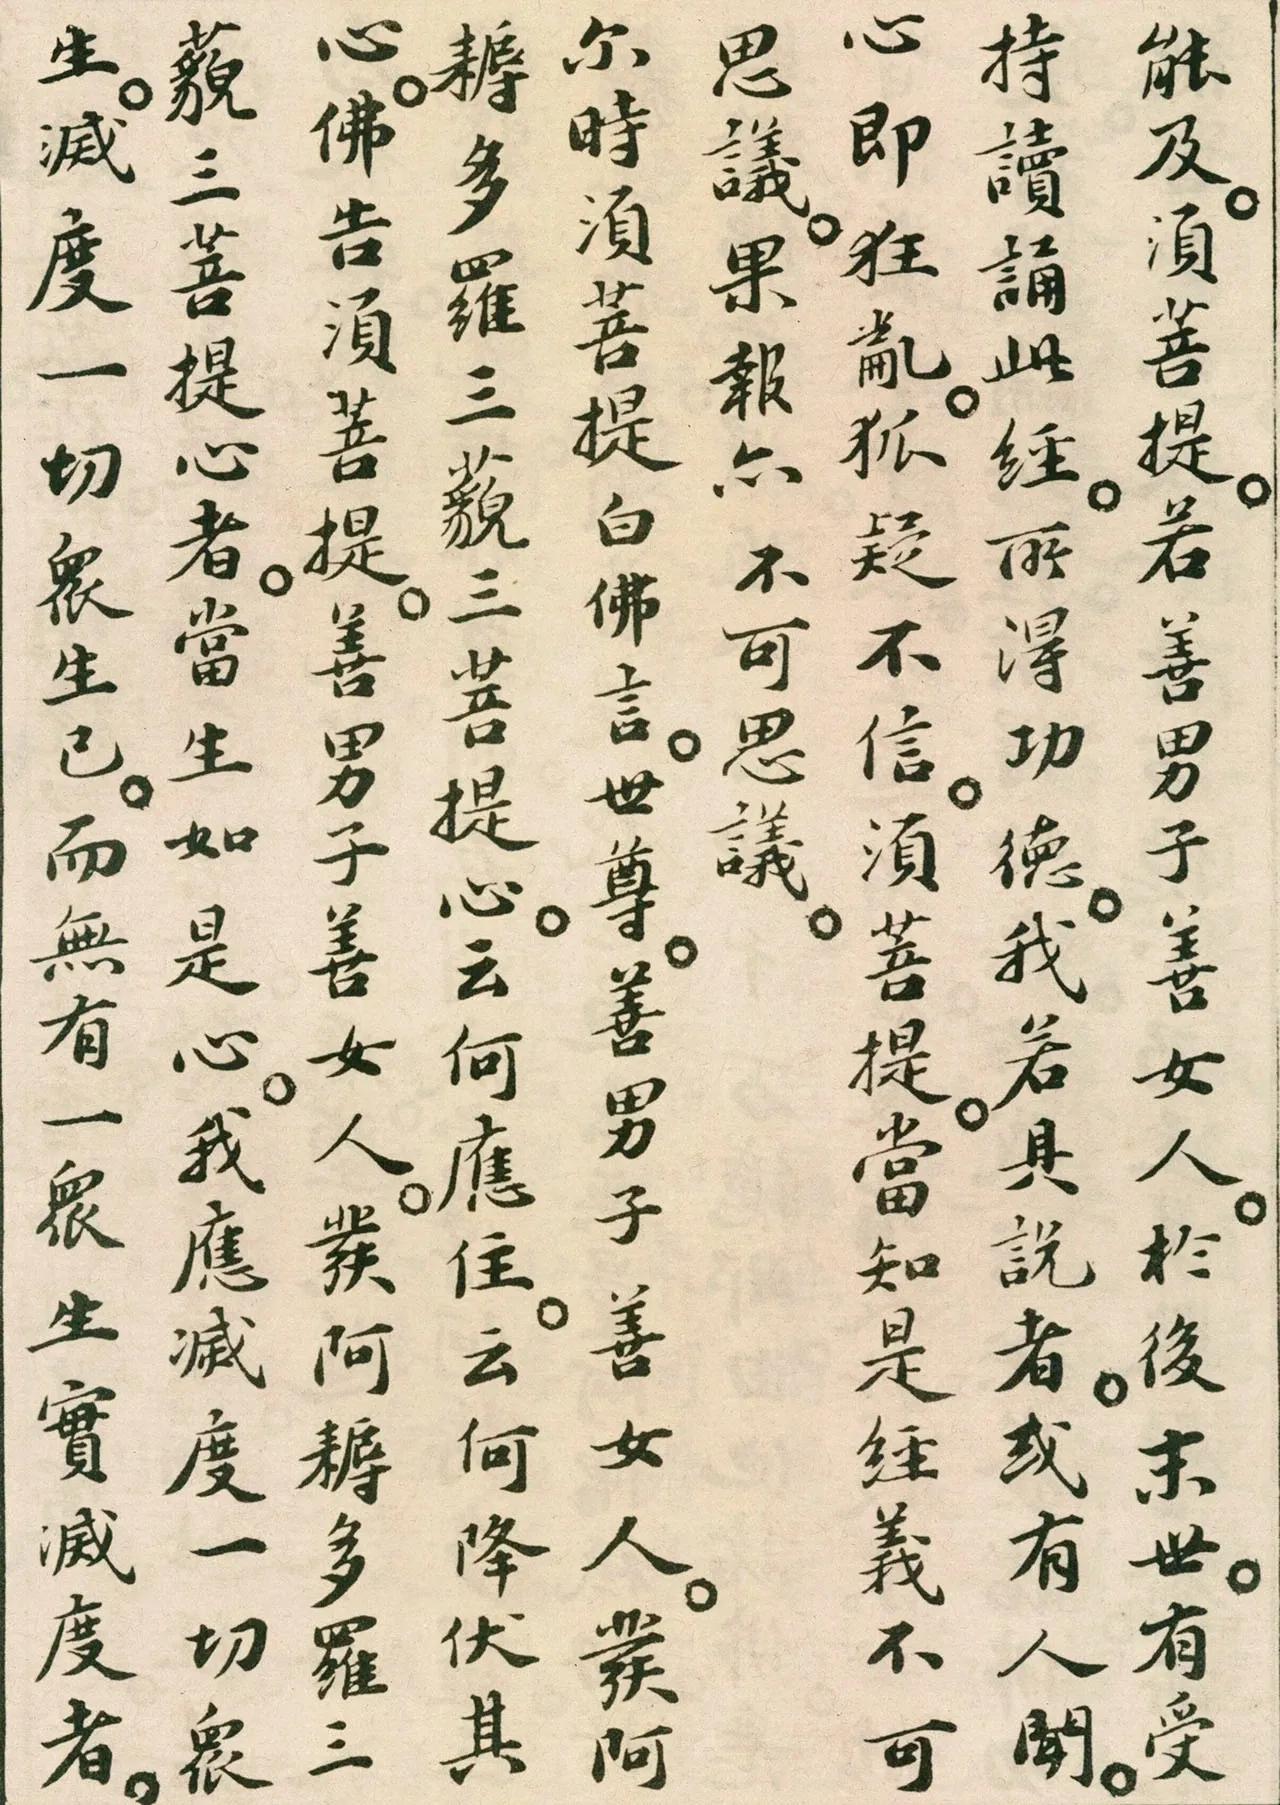 能及。須菩提。若善男子善女人。於後末世。有受
持讀誦此經。所得功德。我若具說者。或有人聞。
心即狂亂。狐疑不信。須菩提。當知是經義不可
思議。果報亦不可思議。
尒時須菩提白佛言。世尊。善男子善女人。發阿
耨多羅三藐三菩提心。云何應住。云何降伏其
心。佛告須菩提。善男子善女人。發阿耨多羅三
藐三菩提心者。當生如是心。我應滅度一切眾
生。滅度一切眾生已。而無有一眾生實滅度者。